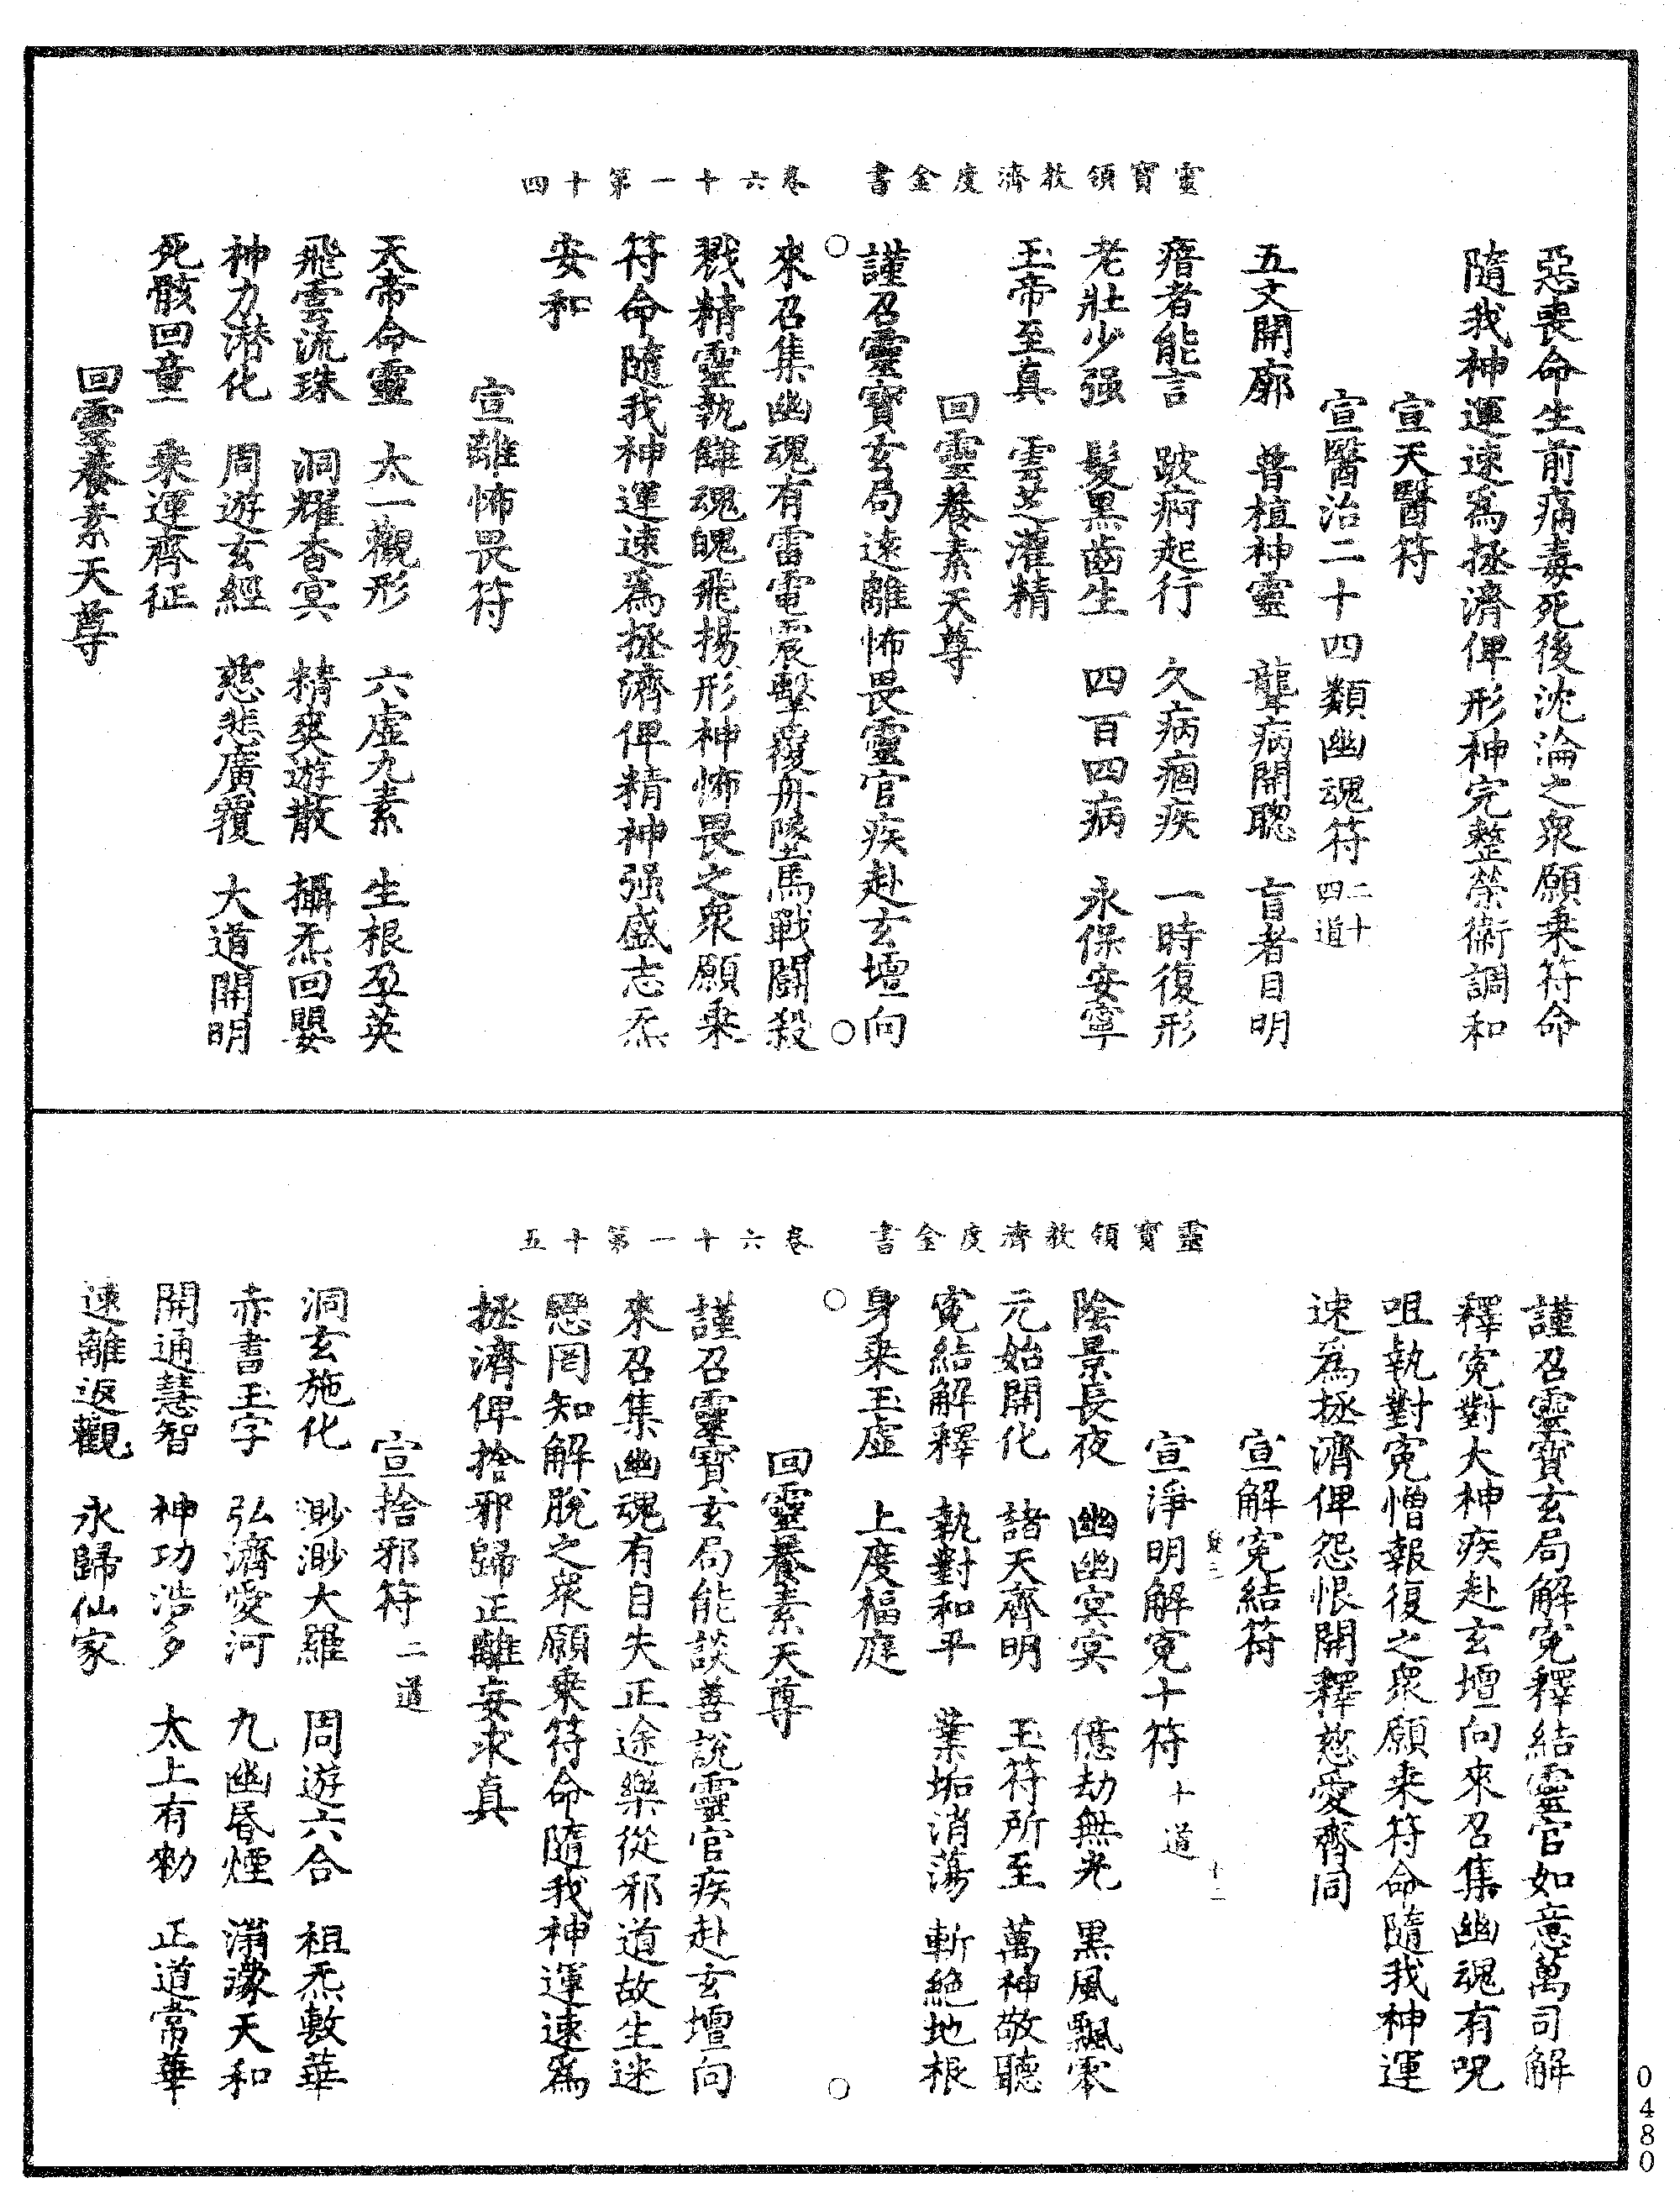 惡喪命生前痛毒死後沈淪之衆願乘符命
隨我神運速爲拯濟俾形神完整榮衛調和
宣天醫符
宣醫治二十四類幽魂符二十四道
五文開廓 普植神靈 聾病開聦 盲者目明
瘖者能言 跛痾起行 久病痼疾 一時復形
老壯少强 髮黑齒生 四百四病 永保安寧
玉帝至真 雲芝灌精
回靈養素天尊
謹召靈寶玄局遠離怖畏靈官疾赴玄壇向
靈寶領教濟度金書 卷六十一第十四
來召集幽魂有雷電震擊覆舟墜馬戰鬪殺
戮精靈執讎魂魄飛揚形神怖畏之衆願乘
符命隨我神運速爲拯濟俾精神强盛志炁
安和
宣離怖畏符
天帝命靈 太一觀形 六虛九素 生根孕英
飛雲流珠 洞耀杳冥 精爽遊散 攝炁回嬰
神力潛化 周遊玄經 慈悲廣覆 大道開明
死骸回童 乘運齊征
回靈養素天尊
謹召靈寶玄局解寃釋結靈官如意萬司解
釋寃對大神疾赴玄壇向來召集幽魂有呪
咀執對寃憎報復之衆願来符命隨我神運
速爲拯濟俾怨恨開釋慈愛齊同
宣解寃結符
宣淨明解寃十符十道
陰景長夜 幽幽冥冥 億劫無光 黑風飄零
元始開化 諸天齊明 玉符所至 萬神敬聽
寃結解釋 執對和平 業垢消蕩 斬絕地根
身乘玉虛 上度福庭
靈寶領教濟度金書 卷六十一第十五
回靈養素天尊
謹召靈寶玄局能談善說靈官疾赴玄壇向
來召集幽魂有自失正途樂從邪道故生迷
惑罔知解脫之衆願乘符命隨我神運速爲
拯濟俾捨邪歸正離妄求真
宣捨邪符二道
洞玄施化 渺渺大羅 周遊六合 祖炁敷華
赤書玉字 弘濟愛河 九幽昏煙 溝濛天和
開通慧智 神功浩多 太上有勑 正道常華
速離返觀 永歸仙家
0480